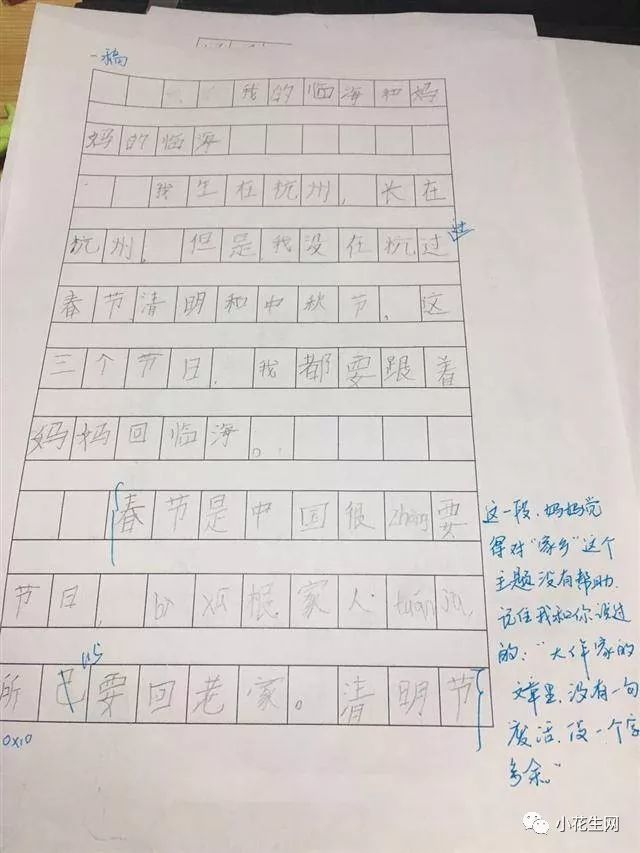 一稿
我的临海和妈
妈的临海
我生在杭州，长在
杭州，但是我没在杭过
春节清明和中秋节，这
三个节日，我都要跟着
妈妈回临海。
春节是中国很zhòng要
节日，bì xū 跟家人tuán jù，
所 要回老家。清明节
这一段，妈妈觉
得对“家乡”这个
主题没有帮助，
记住我和你说过
的：“大作家的
文章里，没有一句
废话，没一个字
多余。”
小花生网